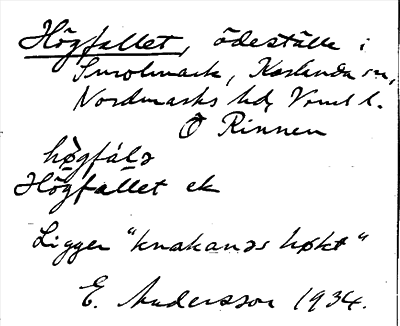 Högfallet, ödeställe i
Smolmark, Karlanda sn,
Nordmarks hd, Vrml l.
O Rinnen
høgfálə
Högfallet ek
Ligger "knakanəs høkt"
E. Andersson 1934.